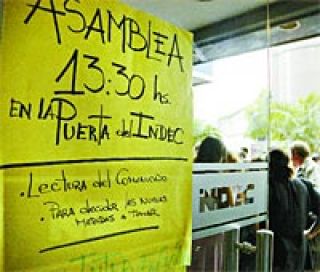 ASAMBLEA
13:30 hs.
EN LA
PUERTA del INDEC
. Lectura del Comunicado
. PARA decidir las nuevas
medidas a tomar
INDEC
INDEC